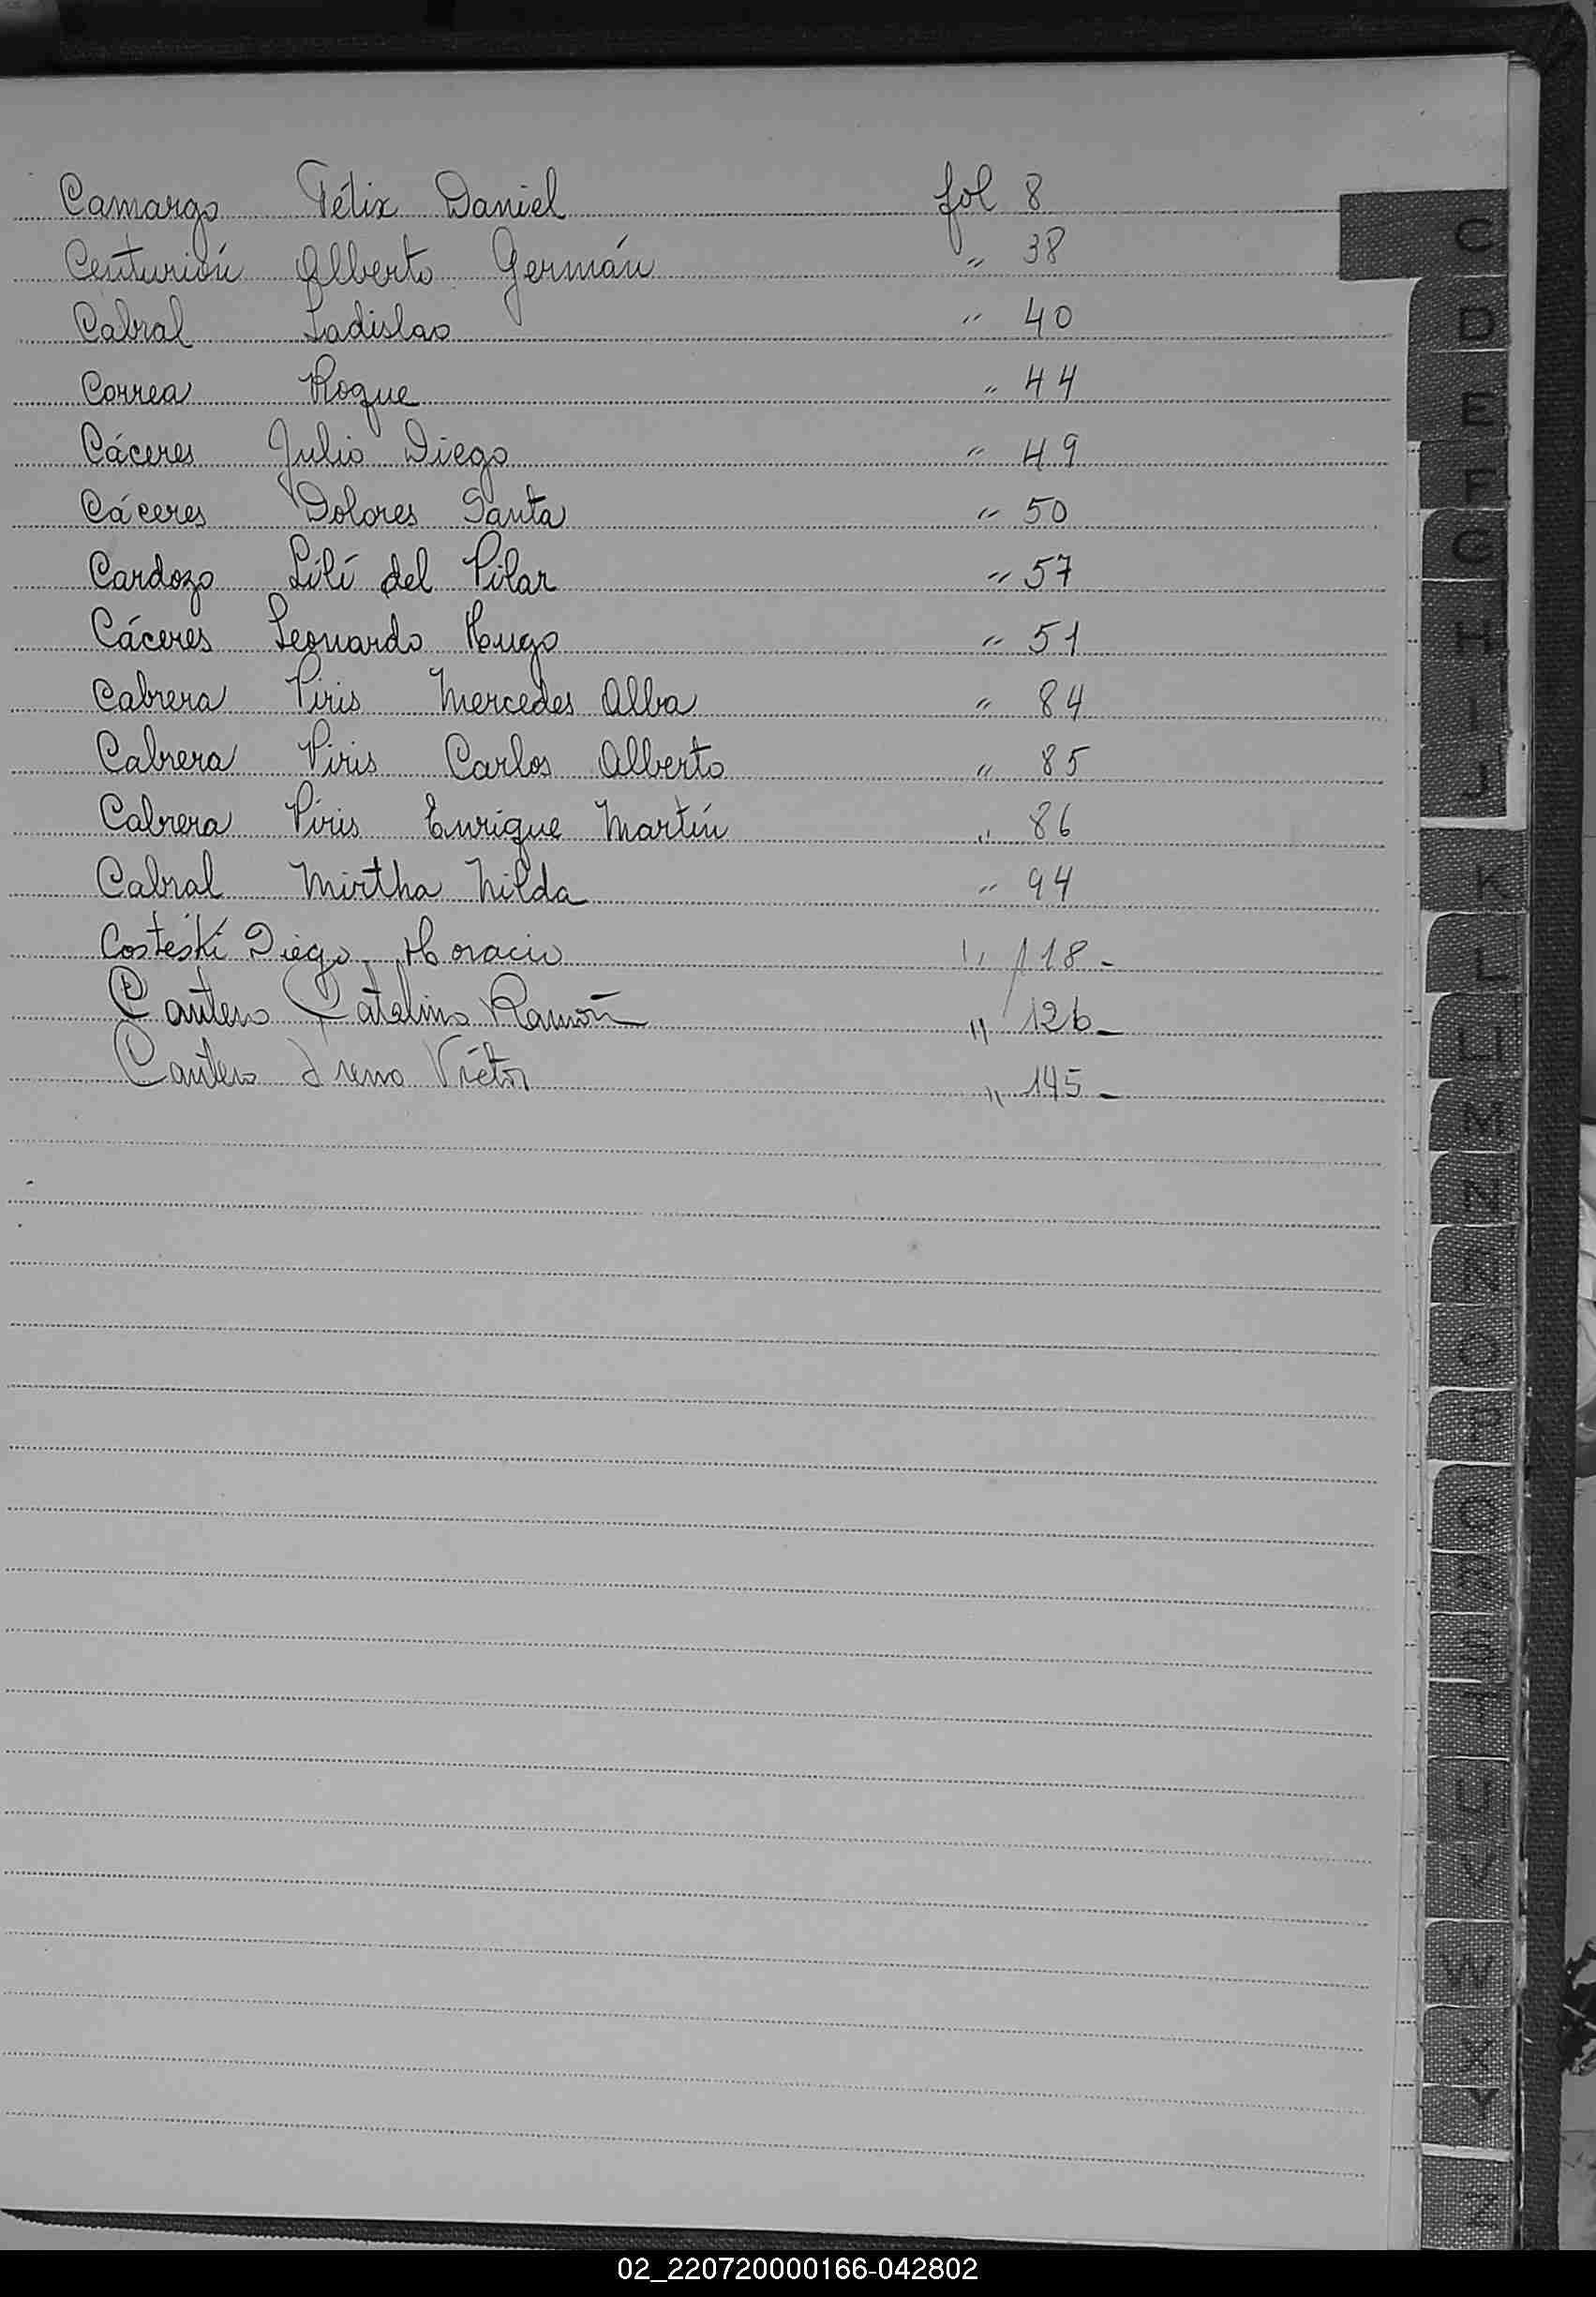 Camargo Félix Daniel fol 8
Centurión Alberto Germán " 38
Cabral Ladislao " 40
Correa Roque " 44
Cáceres Julio Diego " 49
Cáceres Dolores Santa " 50
Cardozo Lilí del Pilar " 57
Cáceres Leonardo Hugo " 51
Cabrera Piris Mercedes Alba " 84
Cabrera Piris Carlos Alberto " 85
Cabrera Piris Enrique Martín " 86
Cabral Mirtha Nilda " 94
Costeski Diego Horacio " 118-
Cantero Catalino Ramón " 126-
Cantero Ireno Víctor " 145-
C
D
E
F
G
H
I
J
K
L
LL
M
N
Ñ
O
P
Q
R
S
T
U
V
W
X
Y
Z
02_220720000166-042802